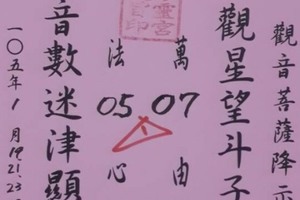 觀音菩薩降示
觀星望斗子
萬07由
法05心
音數迷津顯
一〇五年1月19.21.23